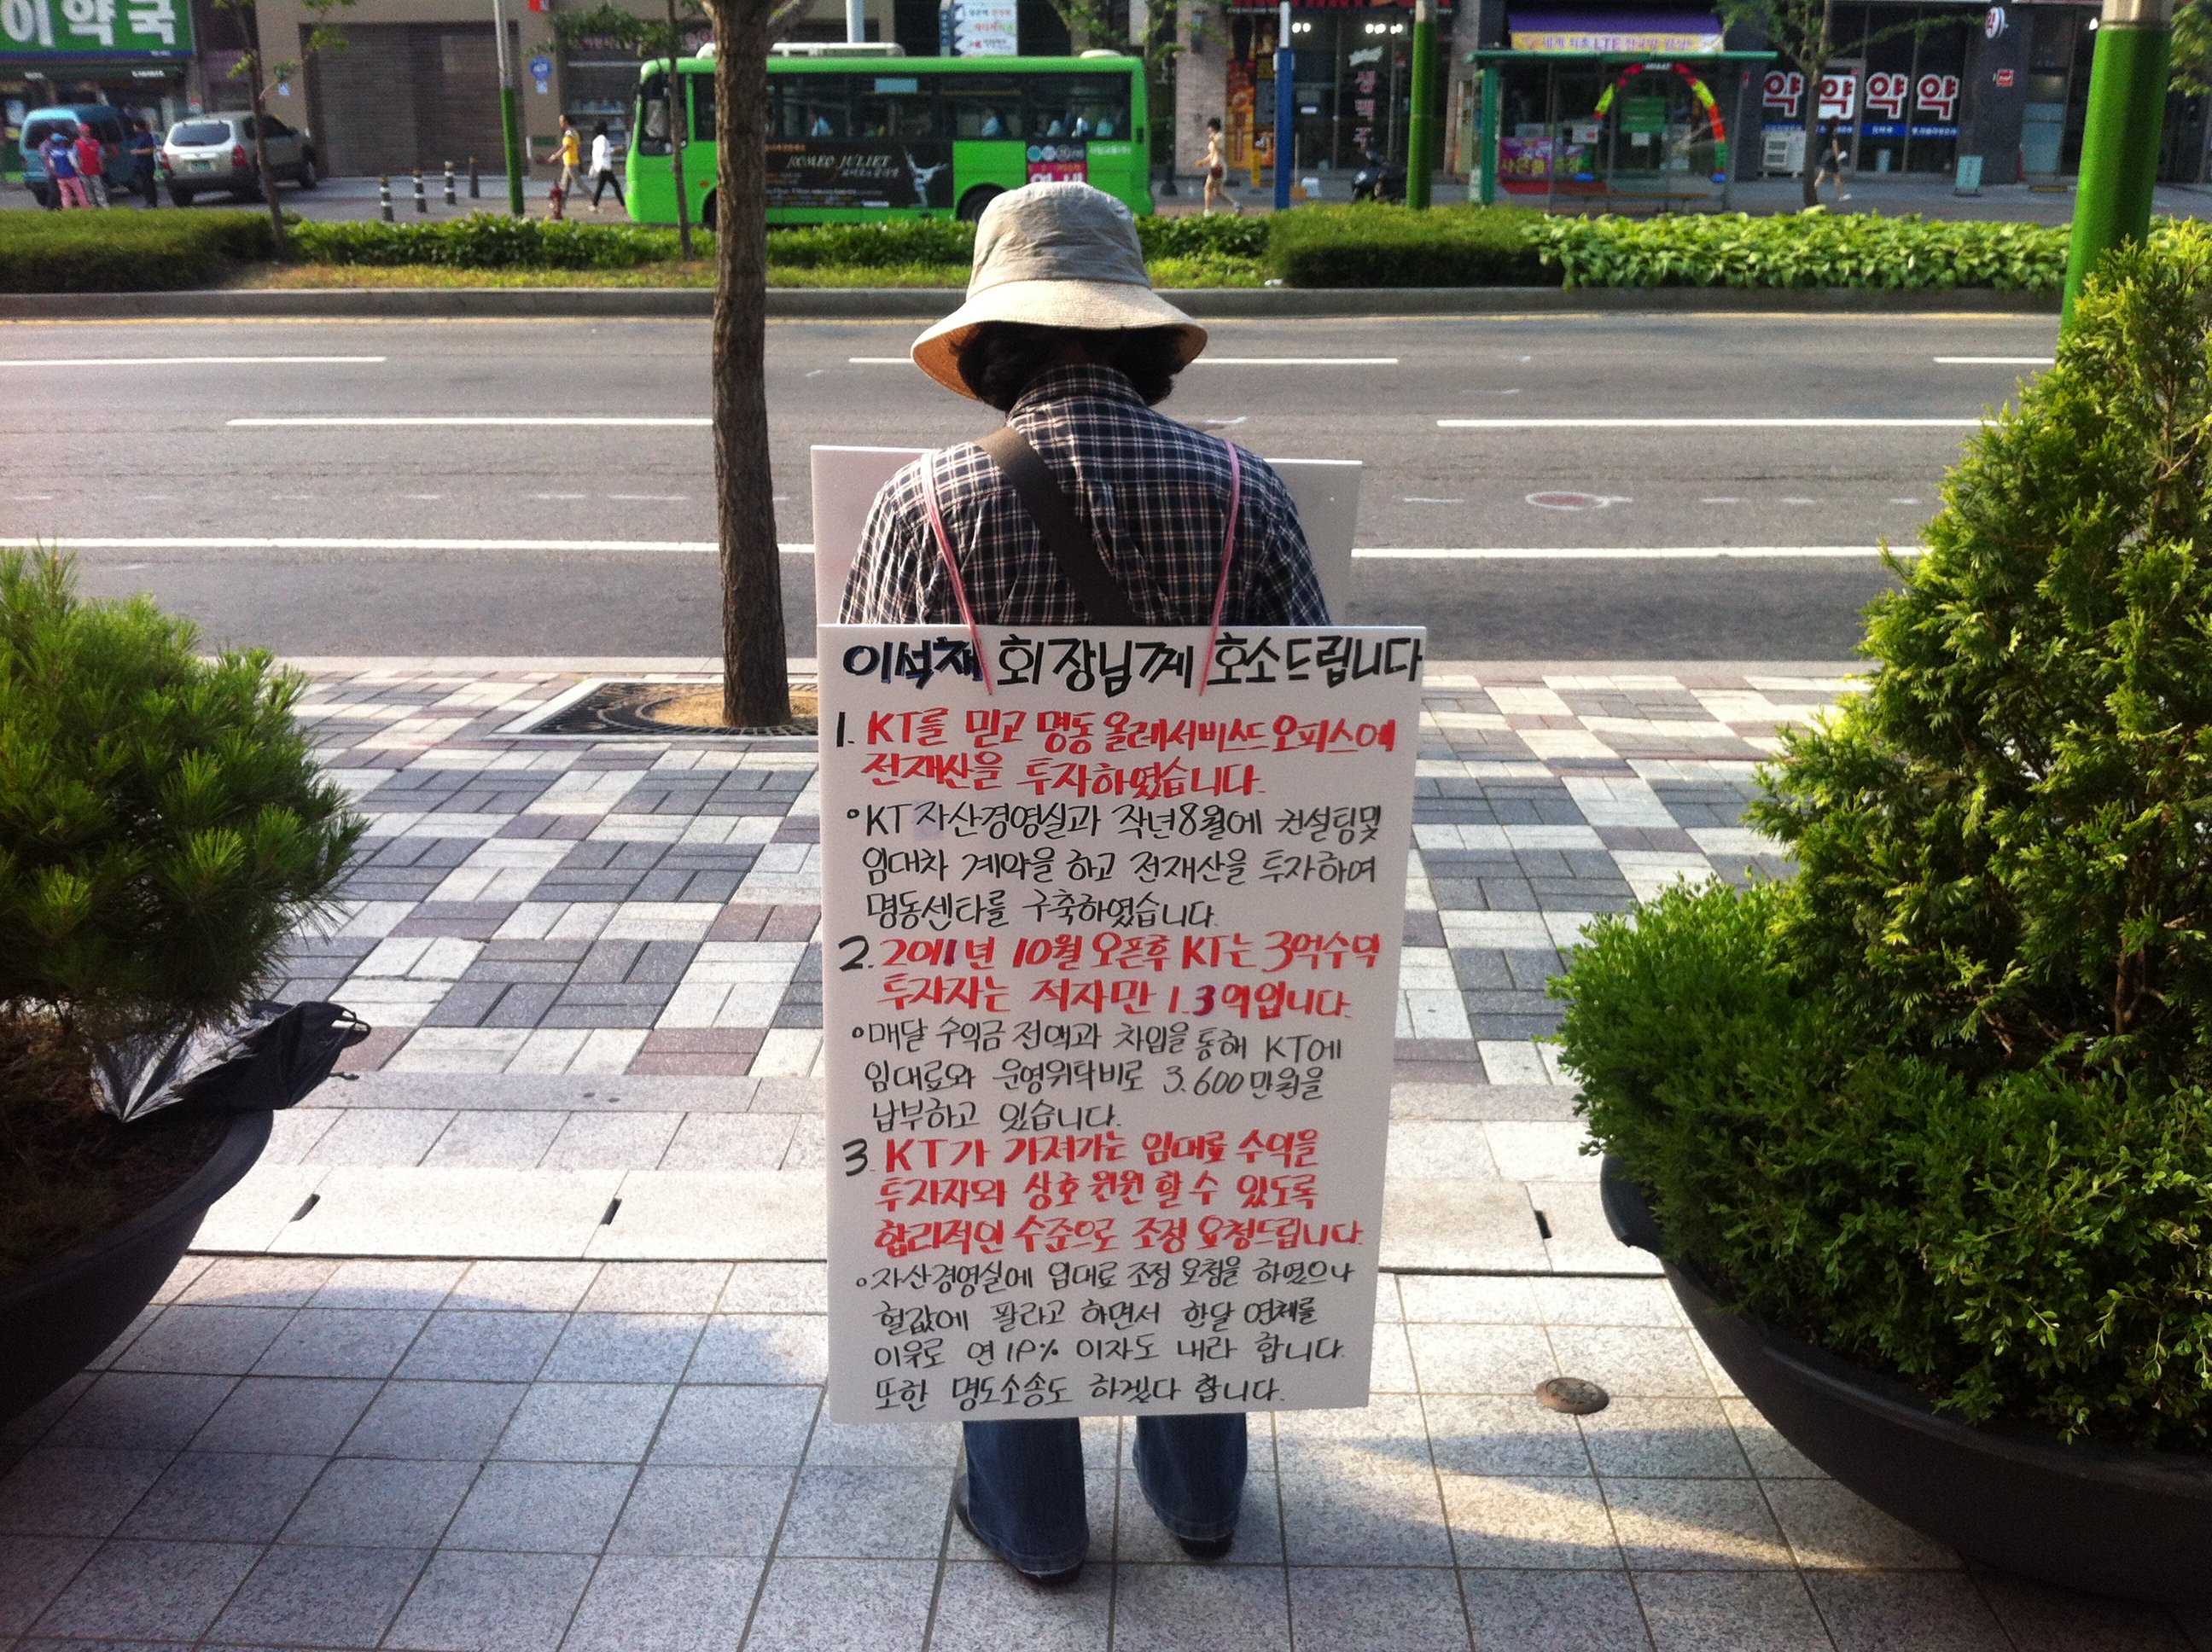 이약국
ROMEO JULIET
세계 최초 LTE 전국망 완성!
약 약 약 약
이석채 회장님께 호소드립니다
1. KT를 믿고 명동 올레서비스드오피스에
전재산을 투자하였습니다.
KT 자산경영실과 작년8월에 컨설팅및
임대차 계약을 하고 전재산을 투자하여
명동센타를 구축하였습니다.
2. 2011년 10월 오픈후 KT는 3억수익
투자자는 적자만 1.3억입니다.
매달 수익금 전액과 차입을 통해 KT에
임대료와 운영위탁비로 3.600만원을
납부하고 있습니다.
3. KT가 가져가는 임대료 수익을
투자자와 상호 윈윈 할 수 있도록
합리적인 수준으로 조정 요청드립니다.
자산경영실에 임대료 조정 요청을 하였으나
헐값에 팔라고 하면서 한달 연체를
이유로 연 19% 이자도 내라 합니다.
또한 명도소송도 하겠다 합니다.